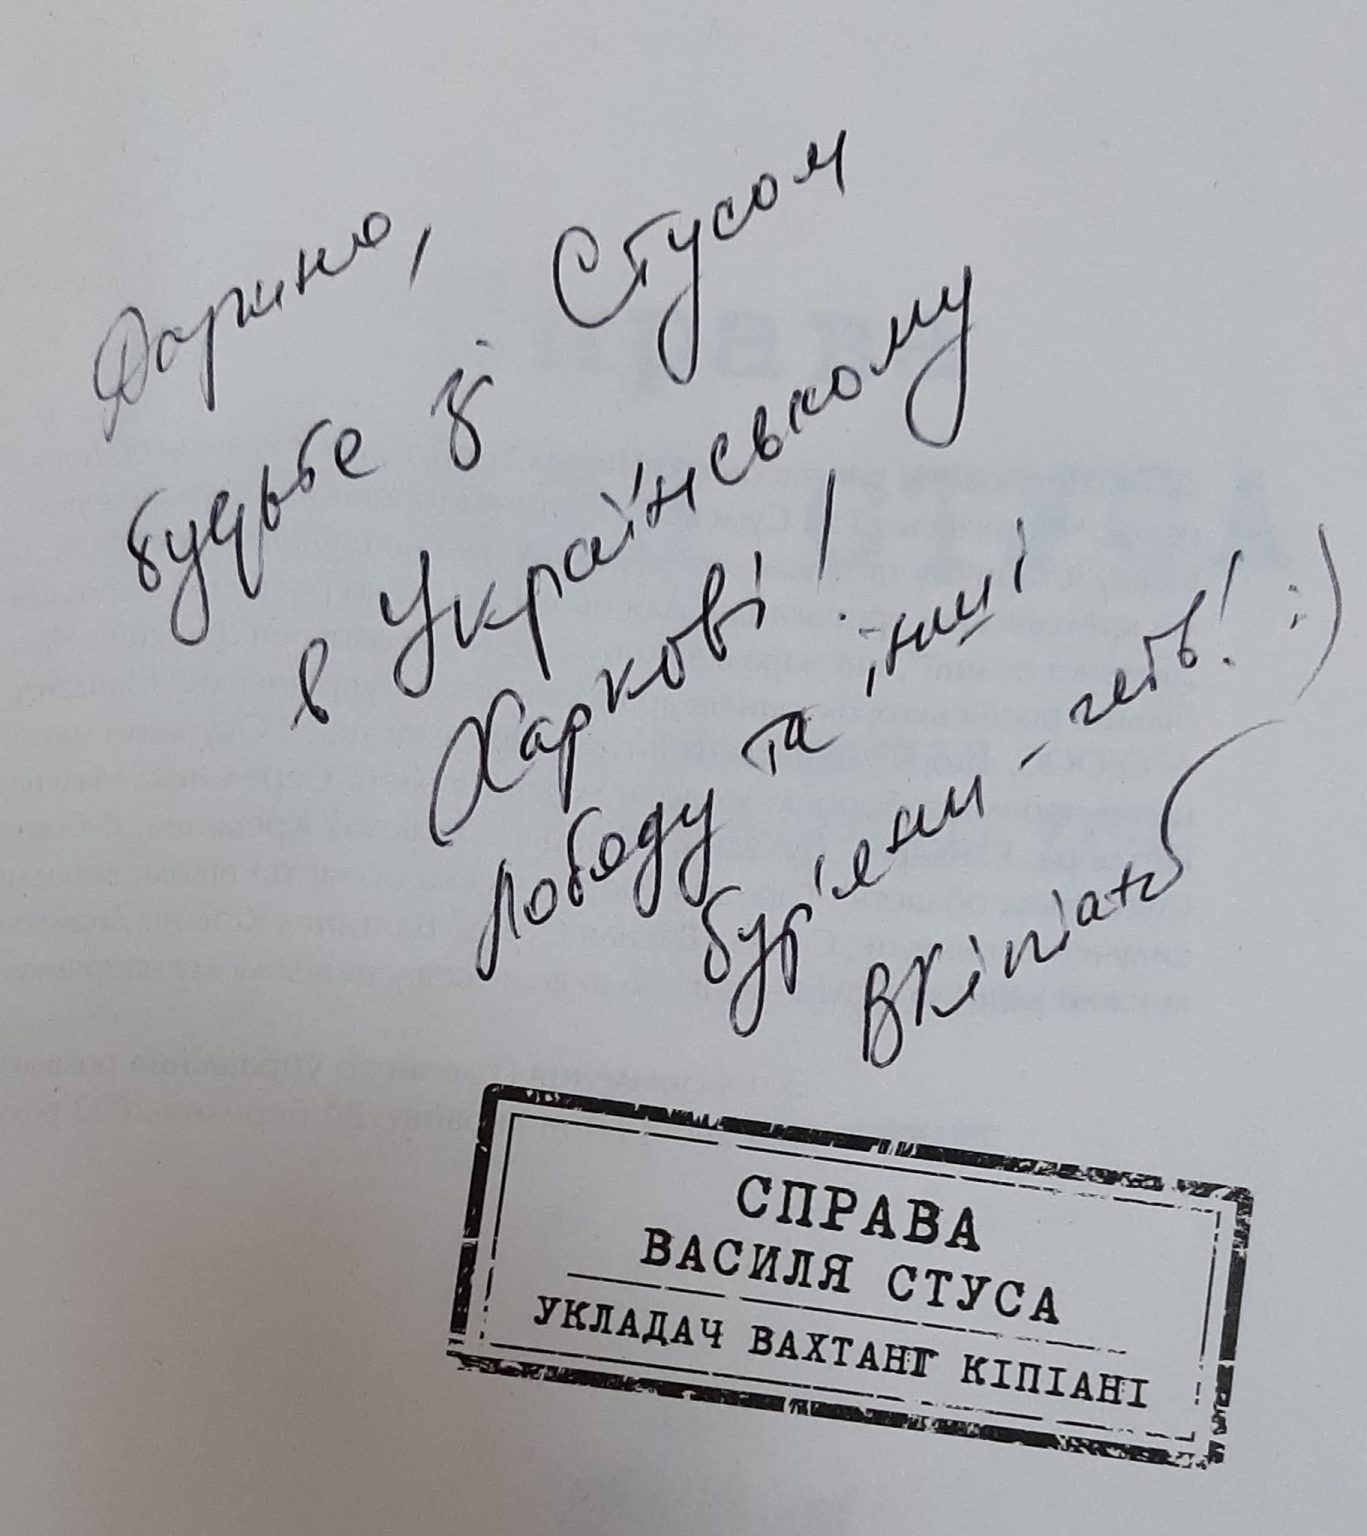 Дарино,
будьте зі Стусом
в Українському
Харкові!
Лободу та інші
бур'яни - геть! :)
ВКіпіані
СПРАВА
ВАСИЛЯ СТУСА
УКЛАДАЧ ВАХТАНГ КІПІАНІ